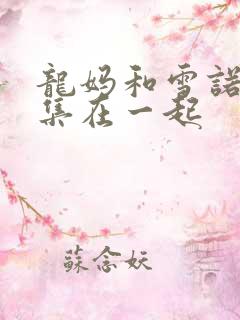 龍妈和雪諾
集在一起
蘇念妖